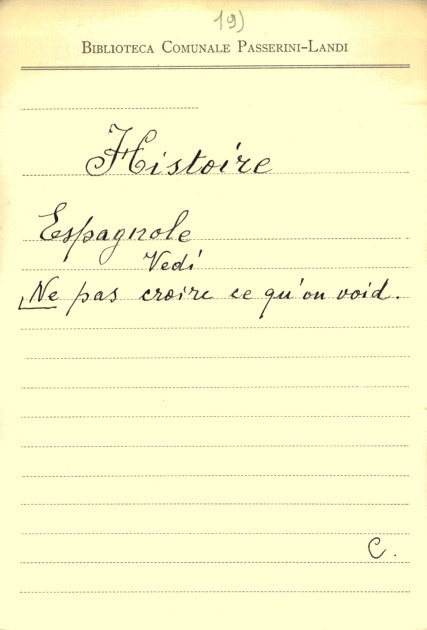 19)
BIBLIOTECA COMUNALE PASSERINI-LANDI
Histoire
Espagnole
Vedi
Ne pas croire ce qu'on void.
C.